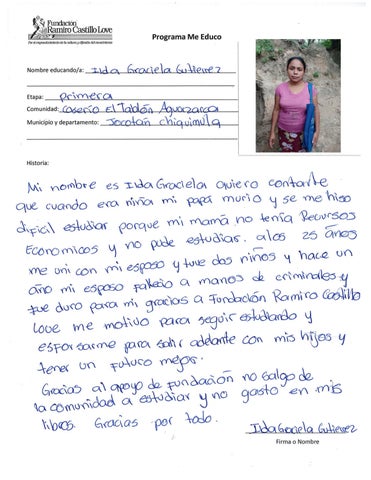 Fundación
Ramiro Castillo Love
Programa Me Educo
Nombre educando/a: Ilda Graciela Gutierrez
Etapa: primera
Comunidad: Caserío El Tablón Aguazarca
Municipio y departamento: Jocotán chiquimula
Historia:
Mi nombre es Ilda Graciela quiero contarte
que cuando era niña mi papá murio y se me hiso
dificil estudiar porque mi mamá no tenía Recursos
Economicos y no pude estudiar. alos 25 años
me uni con mi esposo y tuve dos niños y hace un
año mi esposo fallecio a manos de criminales y
fue duro para mi gracias a Fundación Ramiro Castillo
Love me motivo para seguir estudiando y
esforsarme para salir adelante con mis hijos y
tener un futuro mejor.
Gracias al apoyo de fundación no salgo de
la comunidad a estudiar y no gasto en mis
libros. Gracias por todo.
Ilda Graciela Gutierrez
Firma o Nombre